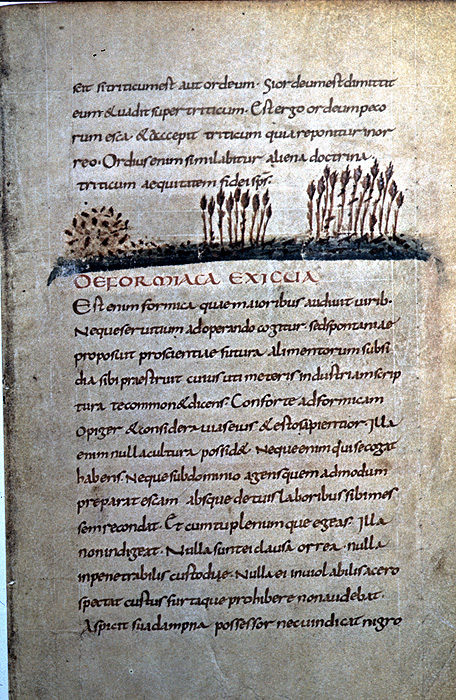 scit si triticum est aut ordeum. Si ordeum est dimittit
eum & uadit super triticum. Est ergo ordeum peco
rum esca. & accepit triticum quia reponitur in or
reo. Ordius enim similabitur aliena doctrina.
triticum aequitatem fidei xpi.
DE FORMICA EXIGUA
Est enim formica quae maioribus audiut uirib.
Neque seruitium ad operando cogitur. sed spontaniae
proposuit pro scientiae futura alimentorum subsi
dia sibi praestruit cuius ut imeteris industriam scrip
tura te common& dicens. Conforte ad formicam
o piger & considera uias eius & esto sapientior. Illa
enim nulla cultura possid&. Neque enim qui se cogat
habens. Neque sub dominio agens quem ad modum
preparat escam absque de tuis laboribus sibi mes
sem recondat. Et cum tu plenumque egeas. Illa
non indigeat. Nulla sunt ei clausa orrea. nulla
inpenetrabilis custodiae. Nulla ei inuiolabilis acero
spectat custus furtaque prohibere non audebat.
Aspicit sua dampna possessor nec uindicat nigro